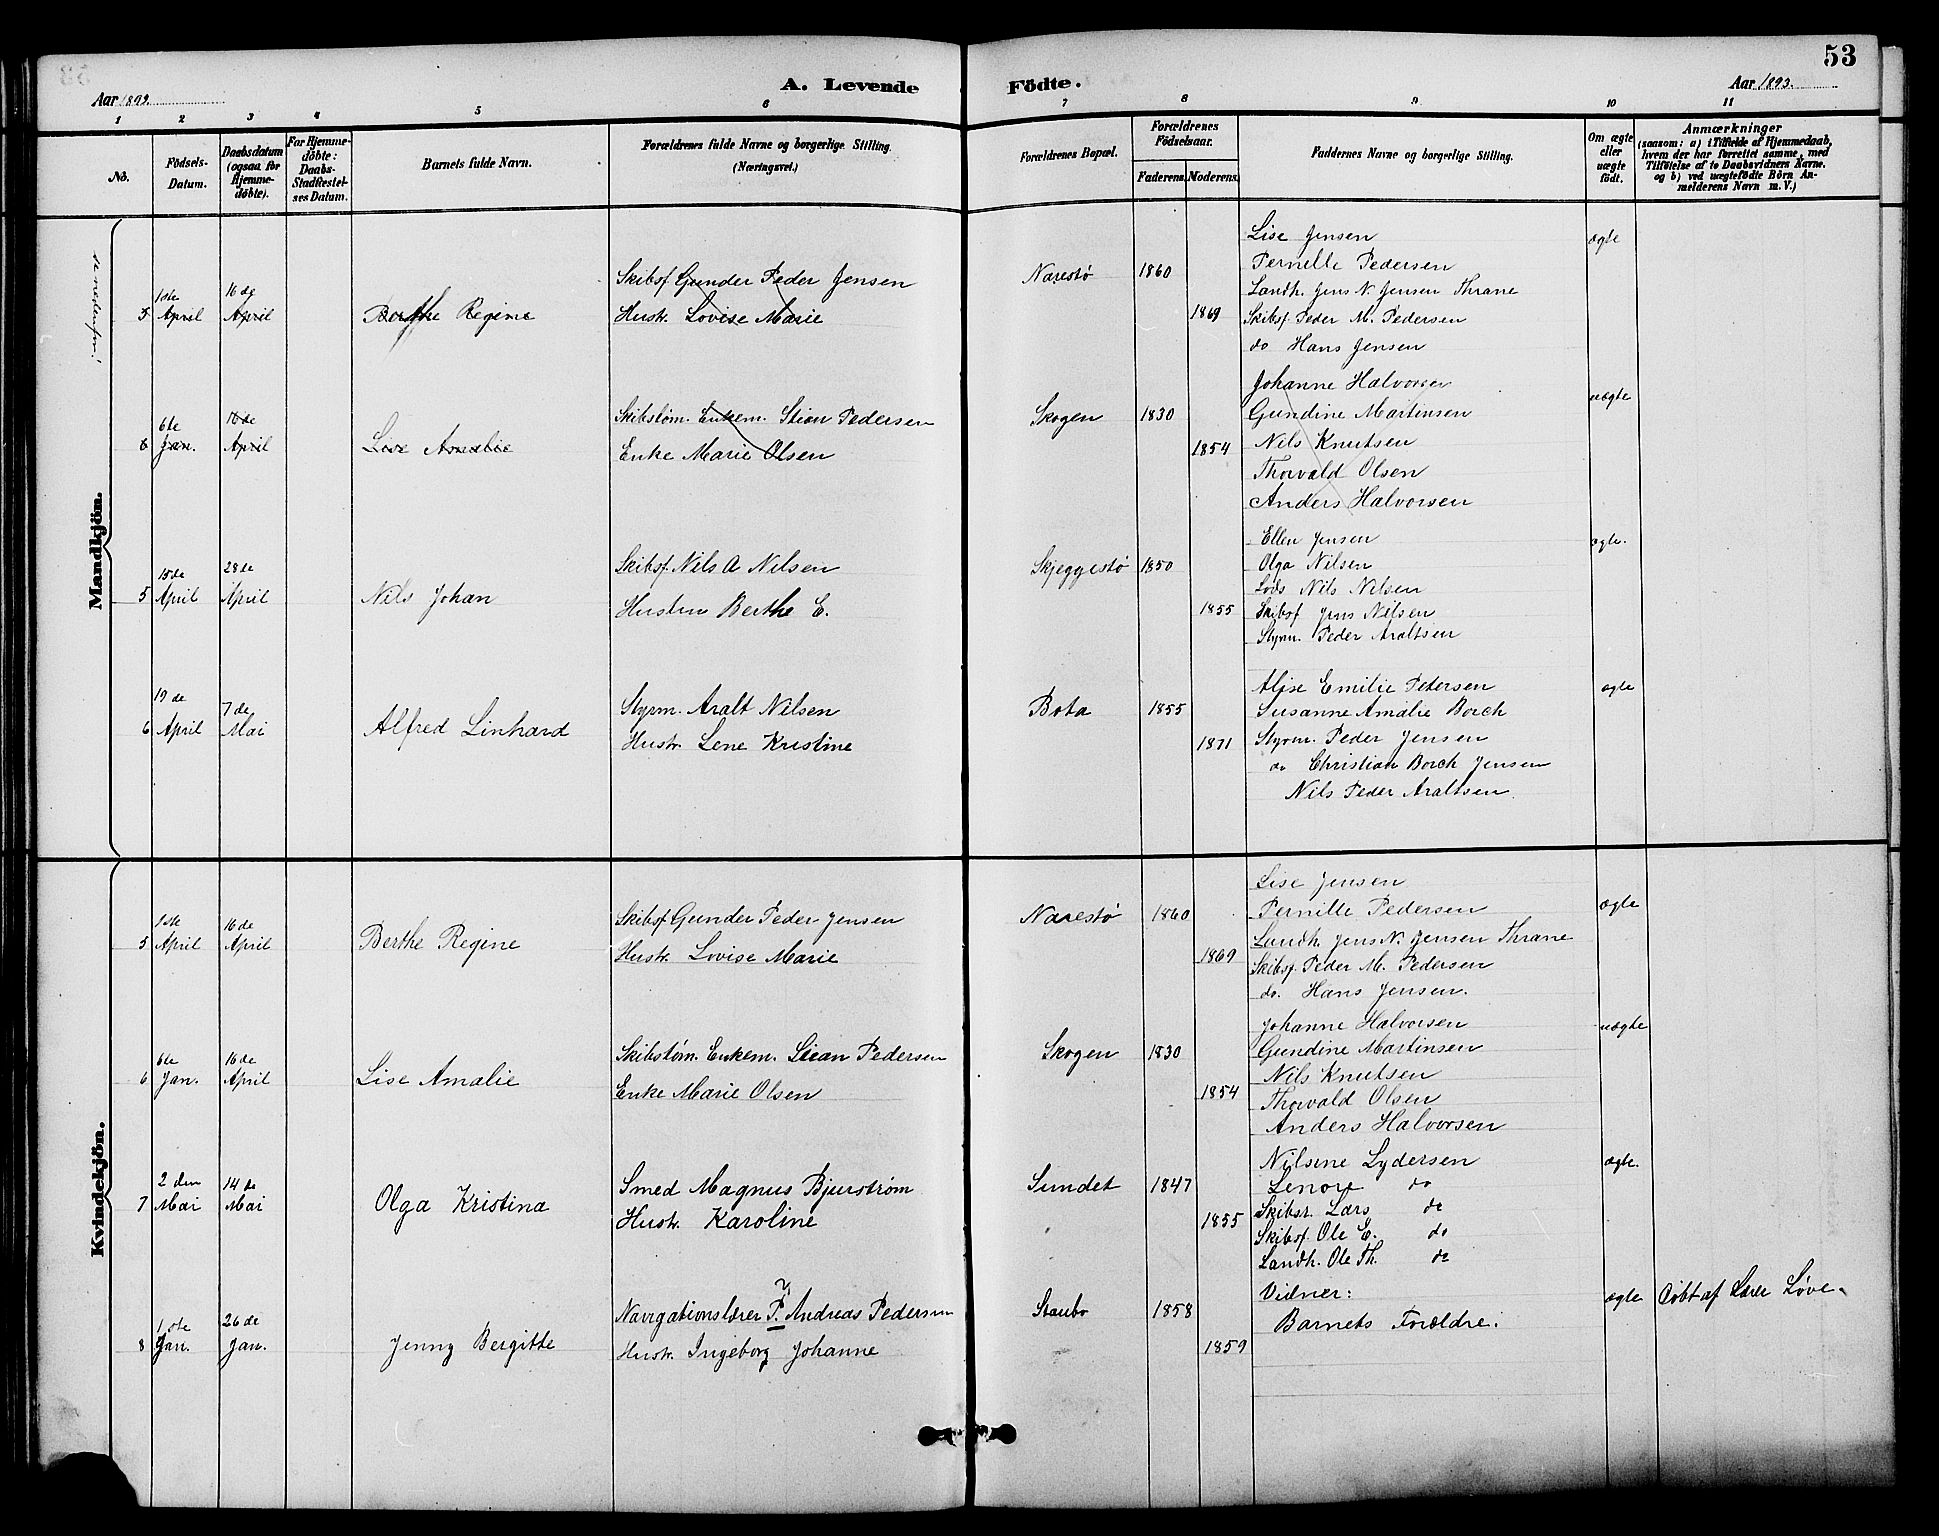 53
A. Levende Födte.
Aar 1893.
Aar 1893.
1 2 3 4 5 6 7 8 9 10 11
No.
Födsels-Datum.
Daabsdatum (ogsaa for Hjemme-döbte).
For Hjemme-döbte: Daabs-Stadfæstel-ses Datum.
Barnets fulde Navn.
Forældrenes fulde Navne og borgerlige Stilling. (Næringsvei.)
Forældrenes Bopæl.
Forældrenes Födselsaar.
Faderens. Moderens.
Faddernes Navne og borgerlige Stilling.
Om ægte eller uægte födt.
Anmærkninger
(saasom: a) i Tilfælde af Hjemmedaab, hvem der har forrettet samme, med Tilföielse af to Daabsvidners Navne, og b) ved uægtefödte Börn An-melderens Navn m. V.)
Mandkjön.
se nedenfor!
5 1ste April 16de April Berthe Regine
Skibsf. Gunder Peder Jensen
Hustr. Lovise Marie
Narestø 1860 1869
Lise Jensen
Pernille Pedersen
Landh. Jens N. Jensen Thrane
Skibsf. Peder M. Pedersen
do Hans Jensen
ægte
6 6te Jan. 16de April Lise Amalie
Skibstøm. Enkem. Stian Pedersen
Enke Marie Olsen
Skogen 1830 1854
Johanne Halvorsen
Gundine Martinsen
Nils Knutsen
Thorvald Olsen
Anders Halvorsen
uægte
5 15de April 28de April Nils Johan
Skibsf. Nils A Nilsen
Hustru Berthe E.
Skjeggestø 1850 1855
Ellen Jensen
Olga Nilsen
Lods Nils Nilsen
Skibsf. Jens Nilsen
Styrm. Peder Araltsen
ægte.
6 19de April 7de Mai Alfred Linhard
Styrm. Aralt Nilsen
Hustr. Lene Kristine
Bota 1855 1871
Alise Emilie Petersen
Susanne Amalie Borch
Styrm. Peder Jensen
do Christian Borch Jensen
Nils Peder Araltsen.
ægte
Kvindekjön.
5 1ste April 16de April Berthe Regine
Skibsf Gunder Peder Jensen
Hustr. Lovise Marie
Narestø 1860 1869
Lise Jensen
Pernille Pedersen
Landh. Jens N. Jensen Thrane
Skibsf. Peder M. Pedersen
do. Hans Jensen.
ægte
6 6te Jan. 16de April Lise Amalie
Skibstøm. Enkem. Stian Pedersen
Enke Marie Olsen
Skogen 1830 1854
Johanne Halvorsen
Gundine Martinsen
Nils Knutsen
Thorvald Olsen
Anders Halvorsen
uægte
7 2den Mai 14de Mai Olga Kristina
Smed Magnus Bjurstrøm
Hustr. Karoline
Sundet 1847 1855
Nilsine Lydersen
Lenore do
Skibsr. Lars do
Skibsf. Ole E. do
Landh. Ole Th. do
ægte.
8 1ste Jan. 26de Jan. Jenny Bergitte
Navigationslærer P. Andreas Pedersen
Hustr. Ingeborg Johanne
Staubo 1858 1859
Vidner:
Barnets Forældre.
ægte
Døbt af Lærer Løve.